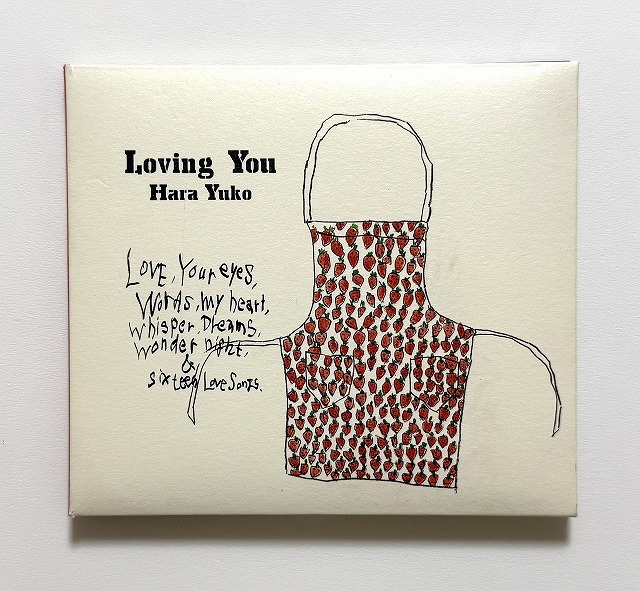 Loving You
Hara Yuko
LOVE, Your eyes,
Words, my heart,
whisper, Dreams,
wonder night,
&
sixteen Love Songs.